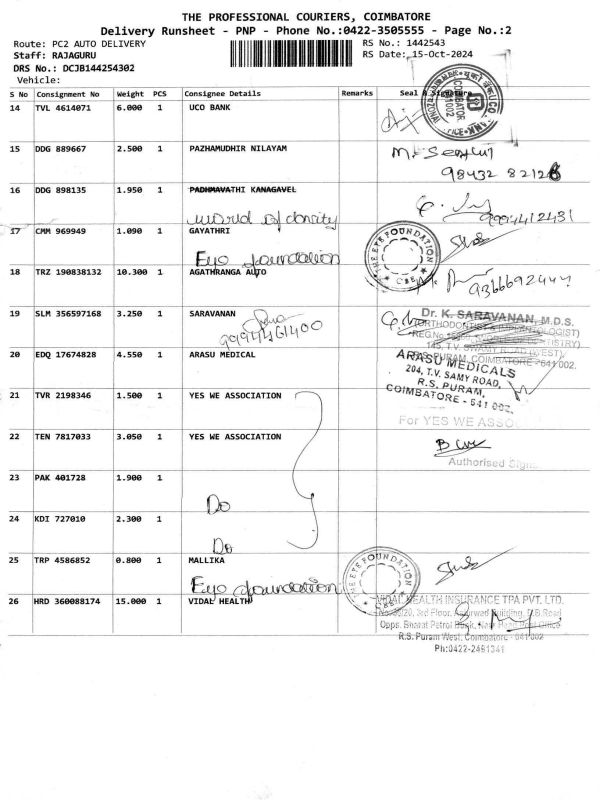 THE PROFESSIONAL COURIERS, COIMBATORE
Delivery Runsheet - PNP - Phone No.:0422-3505555 - Page No.:2
Route: PC2 AUTO DELIVERY
RS No.: 1442543
Staff: RAJAGURU
RS Date: 15-Oct-2024
DRS No.: DCJB144254302
Vehicle:
S No Consignment No Weight PCS Consignee Details Remarks Seal & Signature
14 TVL 4614071 6.000 1 UCO BANK
15 DDG 889667 2.500 1 PAZHAMUDHIR NILAYAM
98432 82126
16 DDG 898135 1.950 1 PADHMAVATHI KANAGAVEL
world of charity
9994412431
17 CMM 969949 1.090 1 GAYATHRI
Eye foundation
THE EYE FOUNDATION
CBE
18 TRZ 190838132 10.300 1 AGATHRANGA AUTO
19 SLM 356597168 3.250 1 SARAVANAN
9994461400
Dr. K. SARAVANAN, M.D.S.
20 EDQ 17674828 4.550 1 ARASU MEDICAL
ARASU MEDICALS
204, T.V. SAMY ROAD,
R.S. PURAM,
COIMBATORE - 641 002.
21 TVR 2198346 1.500 1 YES WE ASSOCIATION
For YES WE ASSOC
22 TEN 7817033 3.050 1 YES WE ASSOCIATION
Authorised Sign
23 PAK 401728 1.900 1
Do
24 KDI 727010 2.300 1
Do
25 TRP 4586852 0.800 1 MALLIKA
Eye foundation
THE EYE FOUNDATION
CBE
26 HRD 360088174 15.000 1 VIDAL HEALTH
VIDAL HEALTH INSURANCE TPA PVT. LTD.
R.S. Puram West, Coimbatore - 641 002
Ph:0422-2491341